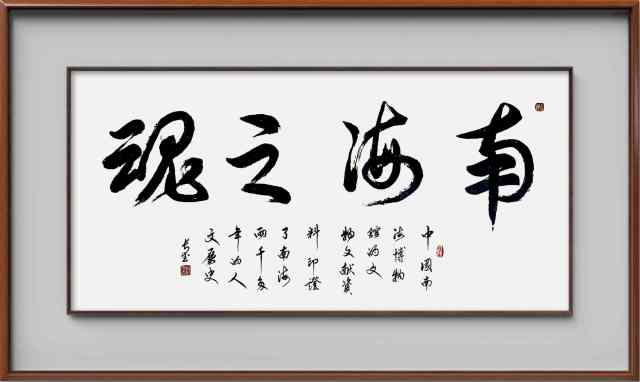 南海之魂
中國南
海博物
館的文
物文獻資
料印證
了南海
兩千多
年的人
文歷史